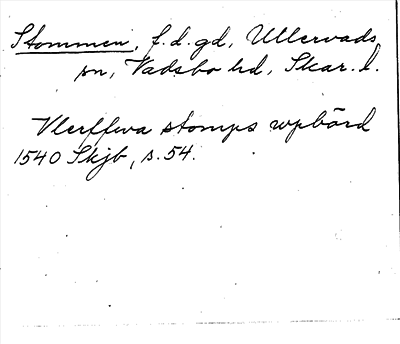 Stommen, f.d. gd, Ullervads
sn, Vadsbo hd, Skar. l.
Vlerffwa stomps wpbörd
1540 Skjb, s. 54.